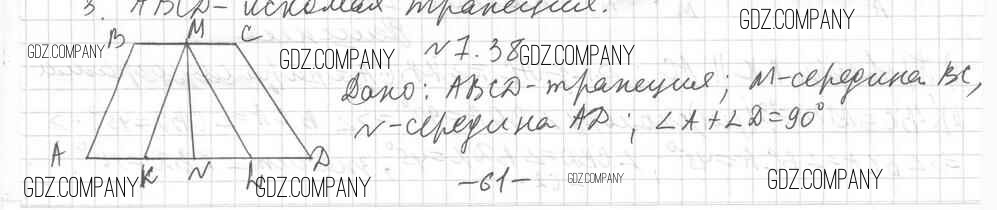 3. ABCD - искомая трапеция.
GDZ.COMPANY
B M C
GDZ.COMPANY
GDZ.COMPANY
№7.38
GDZ.COMPANY
Дано: ABCD - трапеция; M - середина BC,
N - середина AD; ∠A+∠D=90°
A K N L D
GDZ.COMPANY
GDZ.COMPANY
-61-
GDZ.COMPANY
GDZ.COMPANY